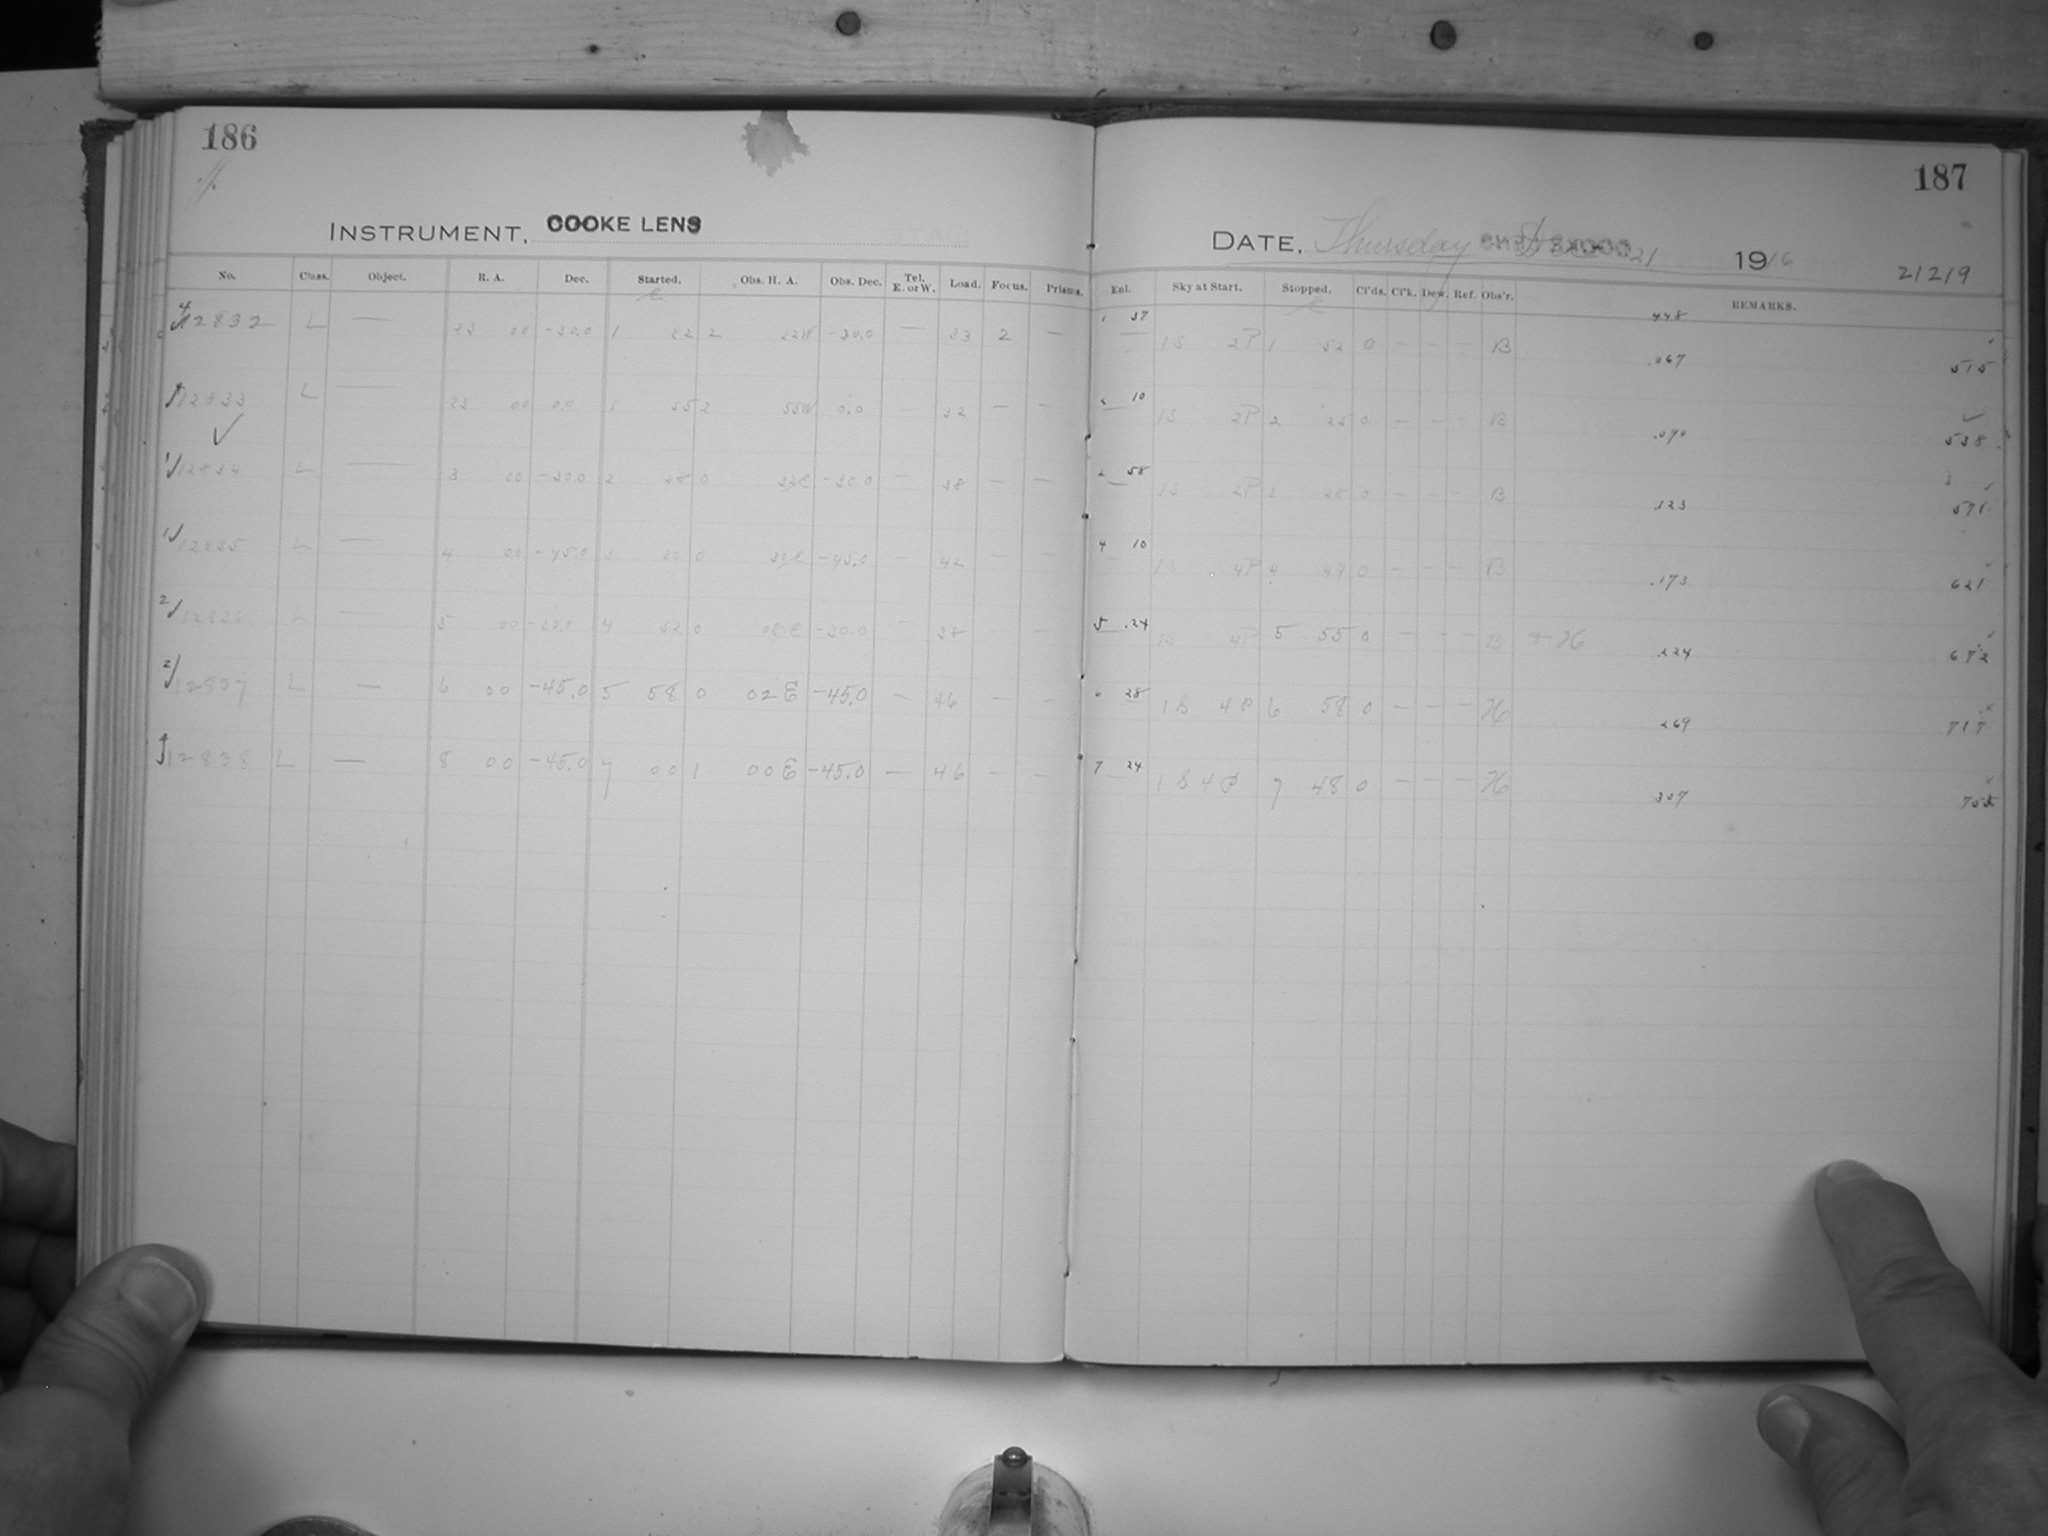 186
187
INSTRUMENT, COOKE LENS
DATE, Thursday 21 1916
21219
No. Class. Object. R. A. Dec. Started. Obs. H. A. Obs. Dec. Tel. E. or W. Load. Focus. Prisms. Enl. Sky at Start. Stopped. Cl'ds. Cl'k. Dew. Ref. Obs'r. REMARKS.
12832 L — 23 00 -30.0 1 22 2 22W -30.0 — 33 2 — 1 37 1S 2P 1 52 0 — — — B .448 .067 515
12833 L — 23 00 0.0 1 55 2 55W 0.0 — 32 — — 2 10 1S 2P 2 25 0 — — — B .090 538
12834 L — 3 00 -30.0 2 28 0 32E -30.0 — 38 — — 2 58 1S 2P 0 — — — B .123 571
12835 L — 4 00 -45.0 3 30 0 30E -45.0 — 42 — — 4 10 1S 4P 4 49 0 — — — B .173 621
12836 L — 5 00 -30.0 4 52 0 08E -30.0 — 38 — — 5 .24 1S 4P 5 55 0 — — — B + H .224 672
12837 L — 6 00 -45.0 5 58 0 02E -45.0 — 46 — — 6 28 1S 4P 6 58 0 — — — H 269 717
12838 L — 8 00 -45.0 7 00 1 00E -45.0 — 46 — — 7 24 1S 4P 7 48 0 — — — H 307